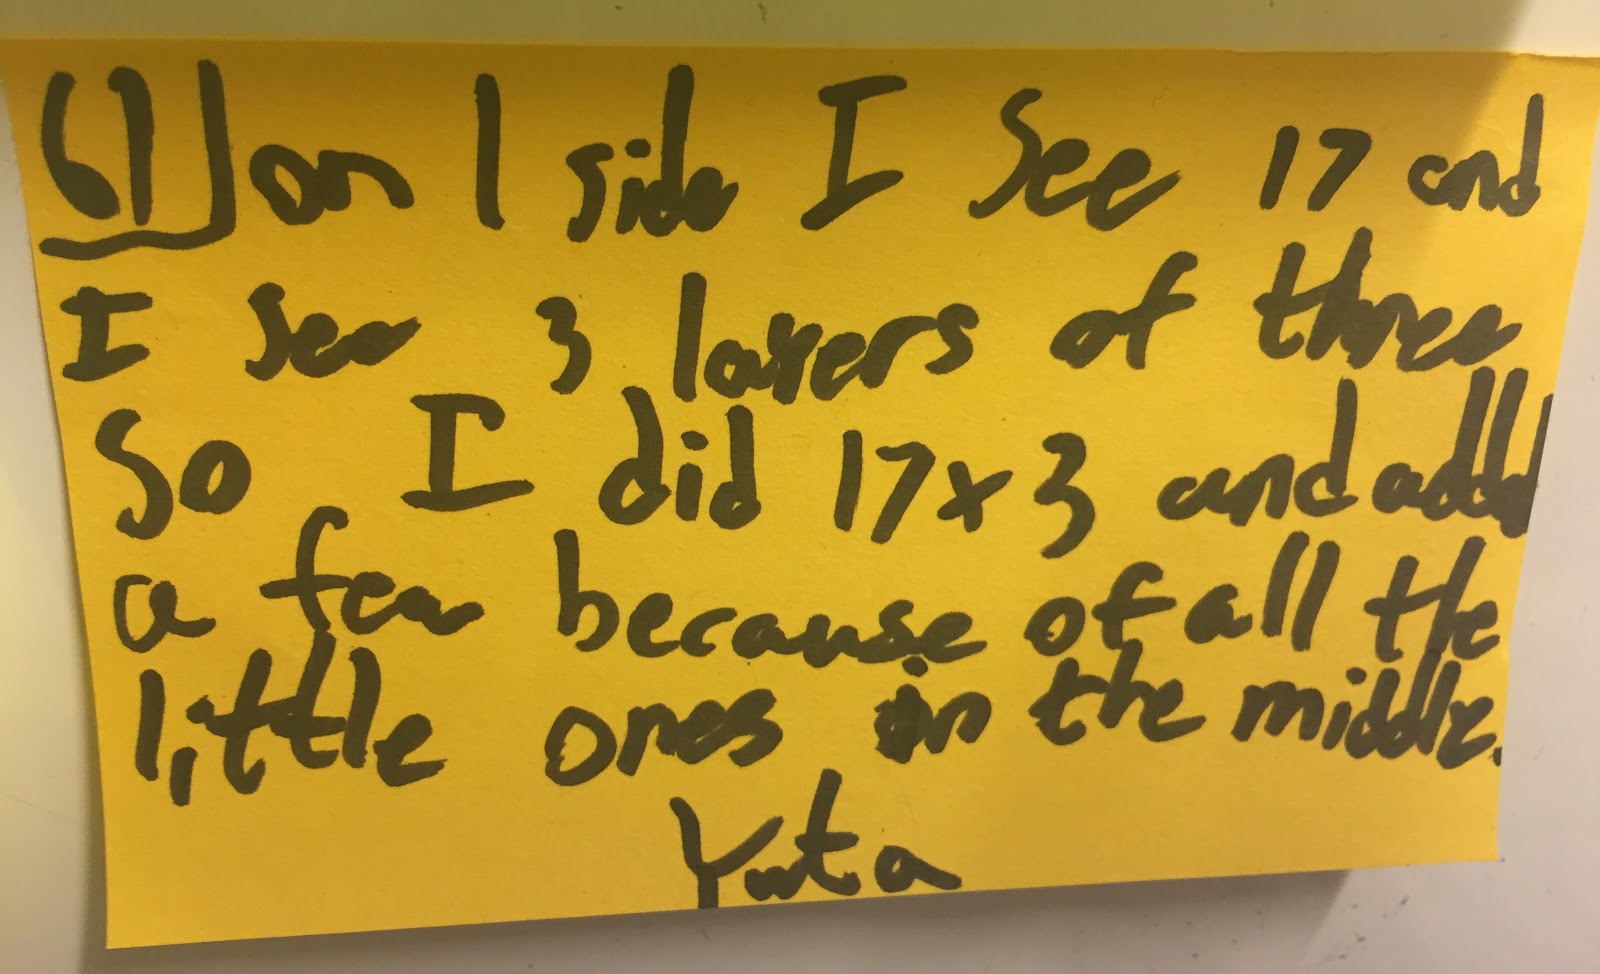 61 on 1 side I see 17 and
I see 3 layers of three
So I did 17x3 and added
a few because of all the
little ones in the middle.
Yuta